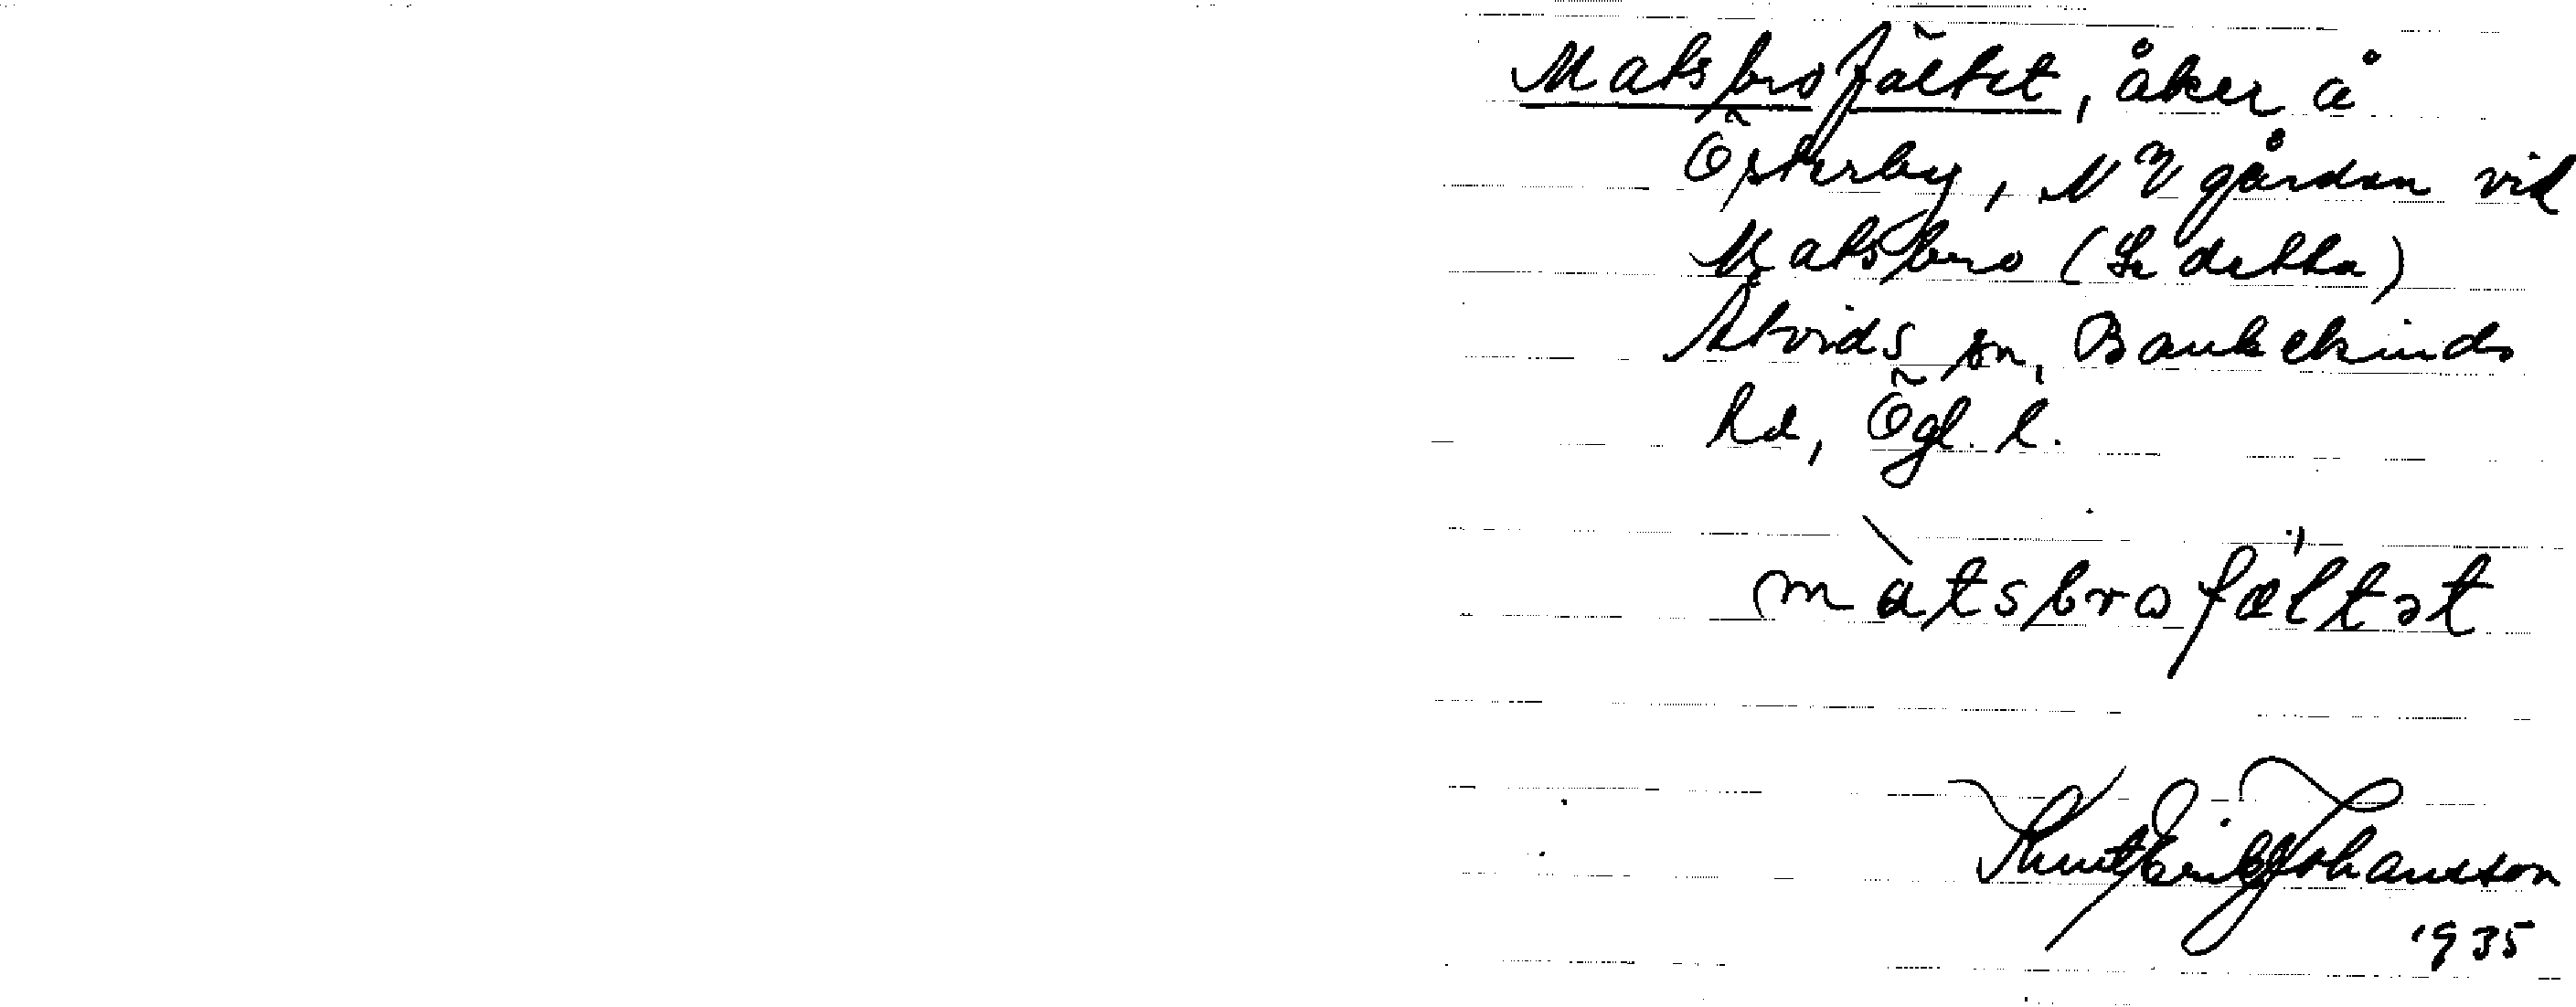 Matsbrofältet, åker å
Österby, NV gården vid
Matsbro (Se detta)
Åtvids sn, Bankekinds
hd, Ögl. l.
màtsbrofæ'ltət
Knut Erik Johansson
1935